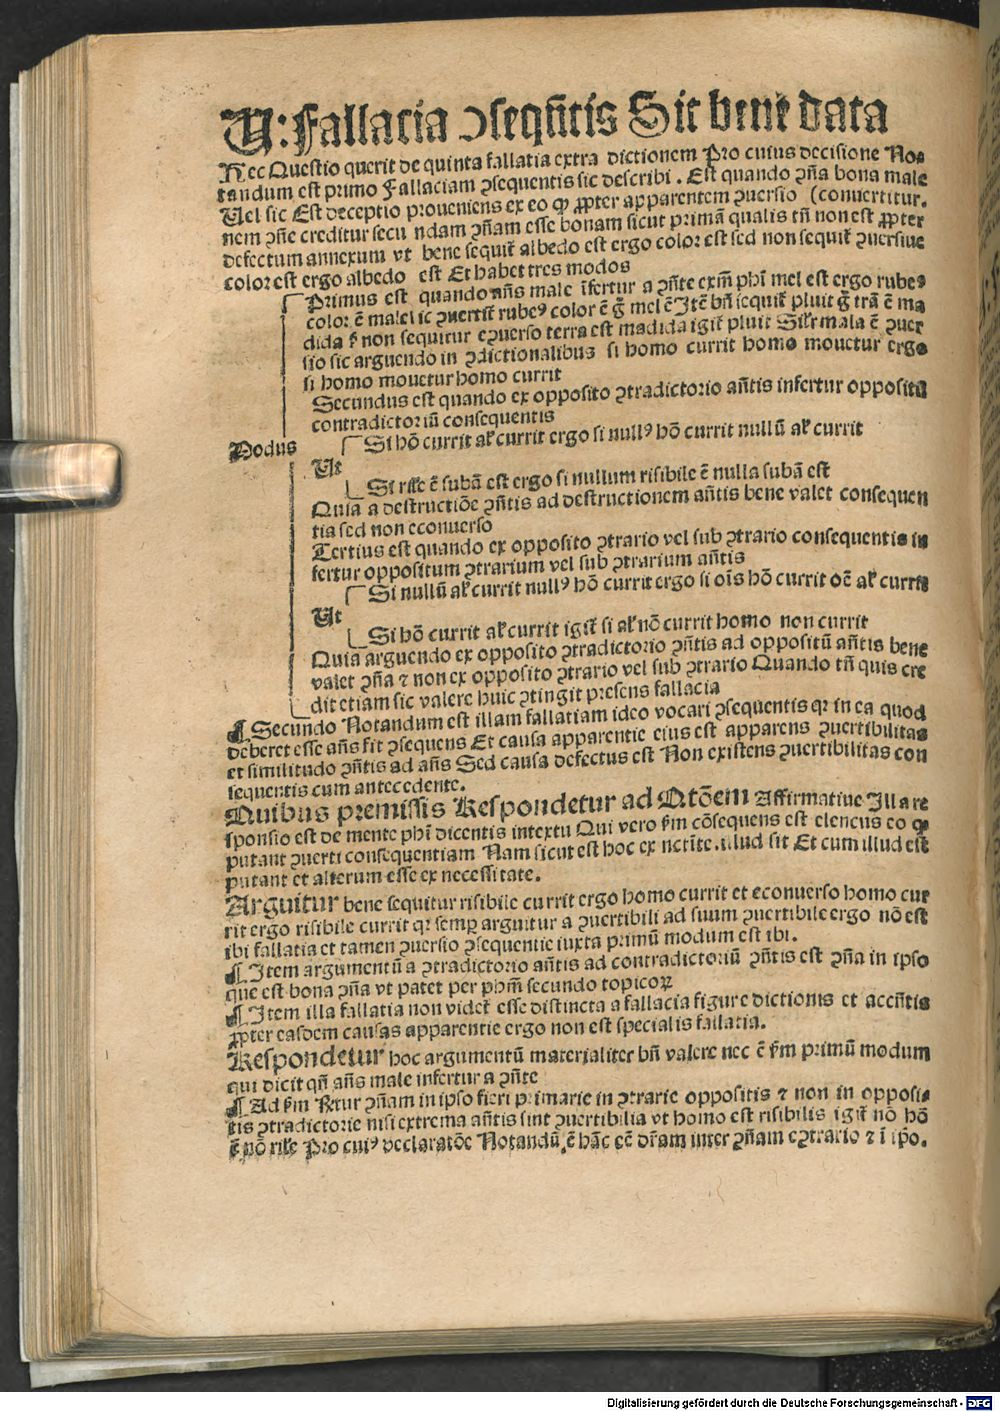 U: Fallacia ↄseqn̄tis Sit bene data
Hec Questio querit de quinta fallatia extra dictionem Pro cuius decisione No⸗
tandum est primo Fallaciam ↄsequentis sic describi. Est quando ↄña bona male
Uel sic Est deceptio proueniens ex eo ꝙ ꝓpter apparentem ↄuersio (conuertitur.
nem ↄñe creditur secu ndam ↄñam esse bonam sicut primā qualis tñ non est ꝓpter
defectum annexum vt bene sequit̄ albedo est ergo color est sed non sequit̄ ↄuersiue
color est ergo albedo est Et habet tres modos
Primus est quando añs male īfertur a ↄñte exm̄ phi mel est ergo rubeꝰ
color ē male sic ↄuertit̄ rubeꝰ color ē g̊ mel ē Itē bñ sequit̄ pluit g̊ trā ē ma
dida s̄ non sequitur eↄuerso terra est madida igit̄ pluit Silr mala ē ↄuer
sio sic arguendo in ↄdictionalibus si homo currit homo mouetur ergo
si homo mouetur homo currit
Secundus est quando ex opposito ↄtradictorio añtis infertur oppositū
contradictoriū consequentis
Modus
Si hō currit al currit ergo si nullꝰ hō currit nullū al currit
Ut
Si risile ē subā est ergo si nullum risibile ē nulla subā est
Quia a destructiōe ↄñtis ad destructionem añtis bene valet consequen
tia sed non econuerso
Tertius est quando ex opposito ↄtrario vel sub ↄtrario consequentis in
fertur oppositum ↄtrarium vel sub ↄtrarium añtis
Si nullū al currit nullꝰ hō currit ergo si oīs hō currit oē al currit
Ut
Si hō currit al currit igit̄ si al nō currit homo non currit
Quia arguendo ex opposito ↄtradictorio ↄñtis ad oppositū añtis bene
valet ↄña ⁊ non ex opposito ↄtrario vel sub ↄtrario Quando tñ quis cre
dit etiam sic valere huic ↄtingit presens fallacia
¶ Secundo Notandum est illam fallatiam ideo vocari ↄsequentis qꝛ in ea quod
deberet esse añs fit ↄsequens Et causa apparentie eius est apparens ↄuertibilitas
et similitudo ↄñtis ad añs Sed causa defectus est Non existens ↄuertibilitas con
sequentis cum antecedente.
Quibus premissis Respondetur ad Qtōem Affirmatiue Illa re
sponsio est de mente phi dicentis in textu Qui vero sm̄ cōsequens est elencus eo ꝙ
putant ↄuerti consequentiam Nam sicut est hoc ex nctīte. illud sit Et cum illud est
putant et alterum esse ex necessitate.
Arguitur bene sequitur risibile currit ergo homo currit et econuerso homo cur
rit ergo risibile currit qꝛ semꝑ arguitur a ↄuertibili ad suum ↄuertibile ergo nō est
ibi fallatia et tamen ↄuersio ↄsequentie iuxta primū modum est ibi.
¶ Item argumentū a ↄtradictorio añtis ad contradictoriū ↄñtis est ↄña in ipso
que est bona ↄña vt patet per phm̄ secundo topicoꝝ
¶ Item illa fallatia non videt̄ esse distincta a fallacia figure dictionis et accñtis
ꝓpter easdem causas apparentie ergo non est specialis fallatia.
Respondetur hoc argumentū materialiter bñ valere nec ē sm̄ primū modum
qui dicit qñ añs male infertur a ↄñte
¶ Ad sm̄ Rñtur ↄñam in ipso fieri primarie in ↄtrarie oppositis ⁊ non in opposi⸗
tis ↄtradictorie nisi extrema añtis sint ↄuertibilia vt homo est risibilis igit̄ nō hō
ē nō risile Pro cuiꝰ declaratōe Notandū ē hāc eē dr̄am inter ↄñam eↄtrario ⁊ ī ip̄o.
Digitalisierung gefördert durch die Deutsche Forschungsgemeinschaft - DFG